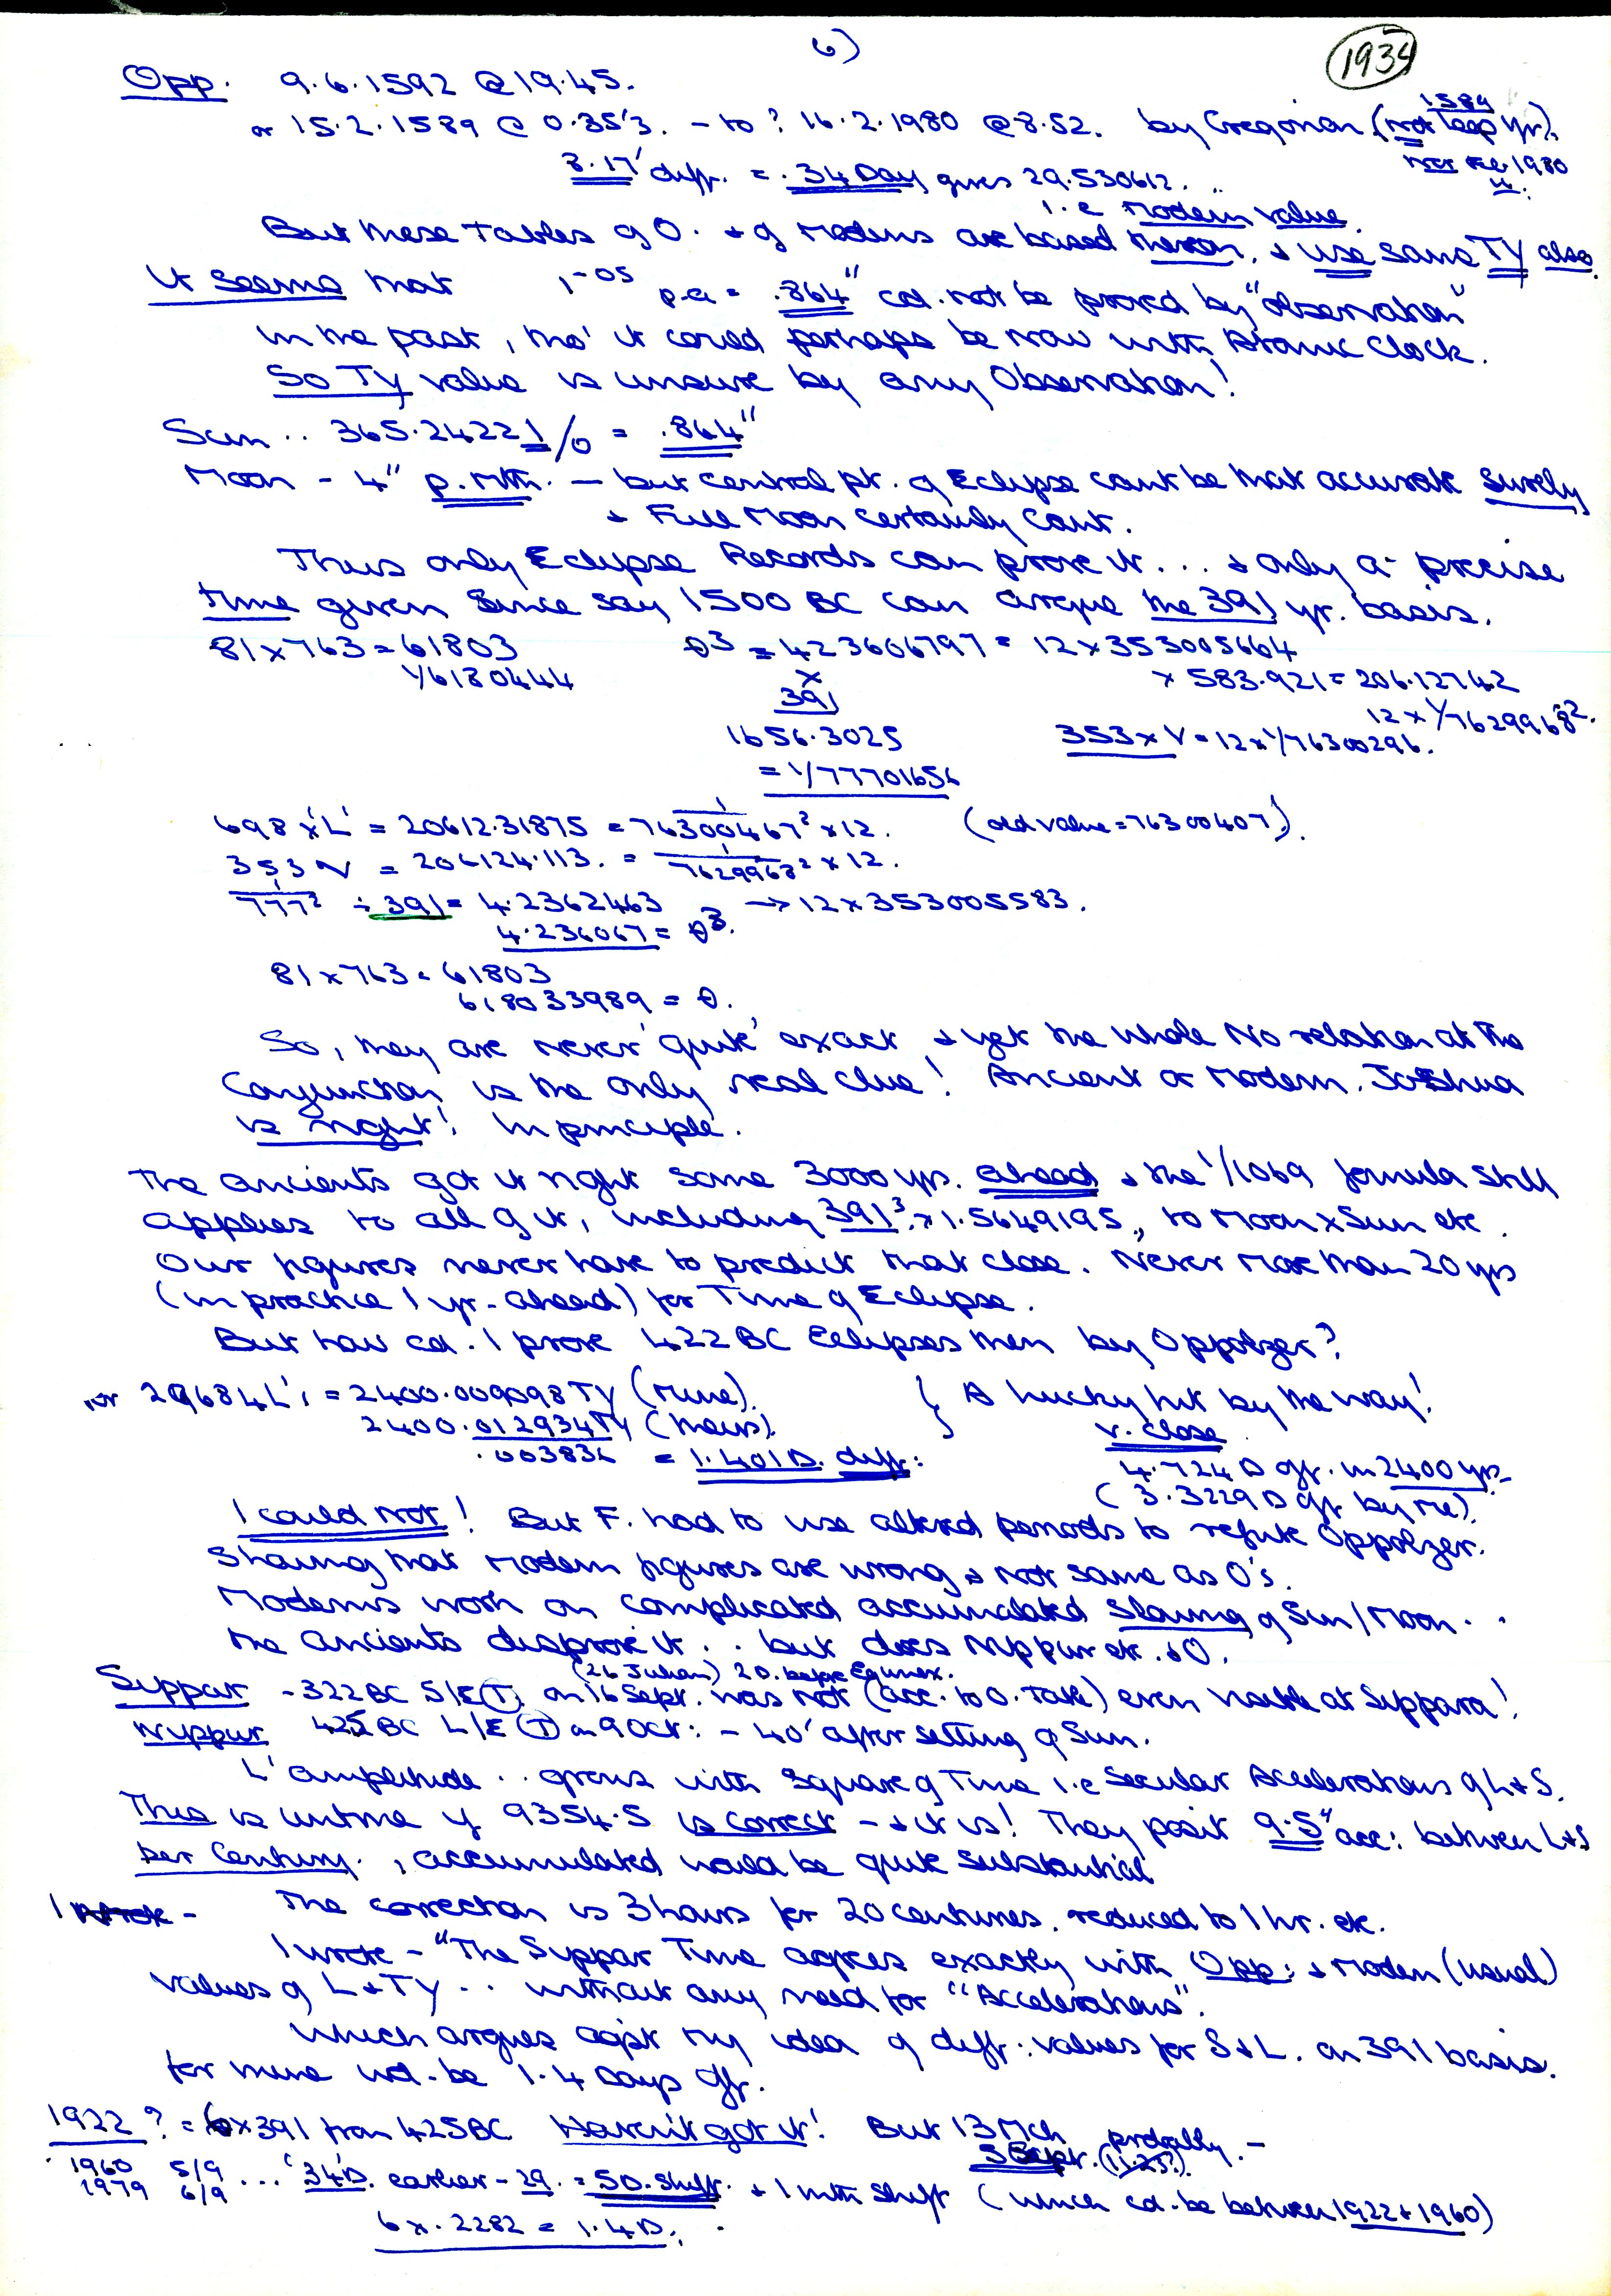 6)
1934
Opp. 9.6.1592 @ 19.45.
or 15.2.1589 @ 0.35'3. - to? 16.2.1980 @ 8.52. by Gregorian (not leap yr).
1584
nor Feb. 1980
8.17' diff. = .34 Day, gives 29.530612.
i.e Modern value
But these Tables of O. & of Moderns are based thereon, & use same TY also.
It seems that 1-05 p.a = .864" cd. not be proved by "observation"
in the past, tho' it could perhaps be now with Atomic Clock.
So TY value is unsure by any Observation!
Sun .. 365.24221/0 = .864"
Moon - 4" p.Mth. - but central pt. of Eclipse cant be that accurate surely
& Full Moon certainly cant.
Thus only Eclipse Records can prove it ... & only a precise
time given since say 1500 BC can argue the 391 yr. basis.
81 x 763 = 61803 θ3 = 423606797 = 12 x 353005664
1/6180444 x x 583.921 = 206.12742
391 12 x 1/7629968 2.
1656.3025 353 x V = 12 x 1/76300296.
= 1/77701656
698 x 'L' = 20612.31875 = 1/76300467² x 12. (old value = 76300407).
353 V = 206124.113. = 1/7629968² x 12.
1/777² ÷ 391 = 4.2362463 → 12 x 353005583.
4.236067 = θ3.
81 x 763 = 61803
618033989 = θ.
So, they are never 'quite' exact & yet the whole No relation at the
Conjunction is the only real clue! Ancient or Modern. Joshua
is right! In principle.
The ancients got it right some 3000 yrs. ahead & the 1/1069 formula still
applies to all of it, including 391³ x 1.5649195, to Moon x Sun etc.
Our figures never have to predict that close. Never more than 20 yrs
(in practice 1 yr. ahead) for Time of Eclipse.
But how cd. I prove 422 BC Eclipses then by Oppolzer?
or 29684 L', = 2400.009098 TY (mine). } A lucky hit by the way!
2400.012934 TY (theirs). v. close
.003836 = 1.401 D. diff: 4.724 D off. in 2400 yrs
(3.3229 D off by me).
I could not! But F. had to use altered periods to refute Oppolzer.
Showing that Modern figures are wrong & not same as O's.
Moderns work on complicated accumulated slowing of Sun/Moon. .
the ancients disprove it .. but does Nippur etc. & O.
(26 Julian) 20. before Equinox.
Sippar - 322 BC S/E (T) on 16 Sept. was not (acc. to O. Table) even visible at Sippara!
Nippur 425 BC L/E (T) on 9 Oct: - 40' after setting of Sun.
L' amplitude .. grows with square of Time i.e Secular Accelerations of L & S.
This is untrue if 9354.5 is correct - & it is! They posit 9.5" acc: between L & S
per Century, accumulated would be quite substantial
I wrote - The correction is 3 hours for 20 centuries. reduced to 1 hr. etc.
I wrote - "The Sippar Time agrees exactly with Opp: & Modern (usual)
values of L & TY .. without any need for "Accelerations".
Which argues agst my idea of diff: values for S & L. on 391 basis.
for mine wd. be 1.4 Days off.
1922? = 6 x 391 from 425 BC Haven't got it! But 13 Mch probably. -
3 Sept. (11.25?).
1960 5/9 ... '34 D. earlier - 29. = 5 D. shift. & 1 mth shift (which cd. be between 1922 & 1960)
1979 6/9
6 x .2282 = 1.4 D.